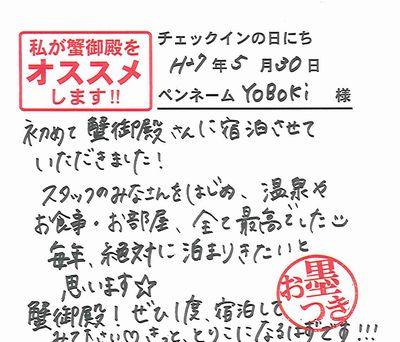 私が蟹御殿を
オススメ
します!!
チェックインの日にち
H27年5月30日
ペンネーム YOBOKi 様
初めて蟹御殿さんに宿泊させて
いただきました!
スタッフのみなさんをはじめ、温泉や
お食事・お部屋、全て最高でした
毎年、絶対に泊まりきたいと
思います☆
蟹御殿!ぜひ1度、宿泊して
みて下さい♡きっと、とりこになるはずです!!!
お墨つき